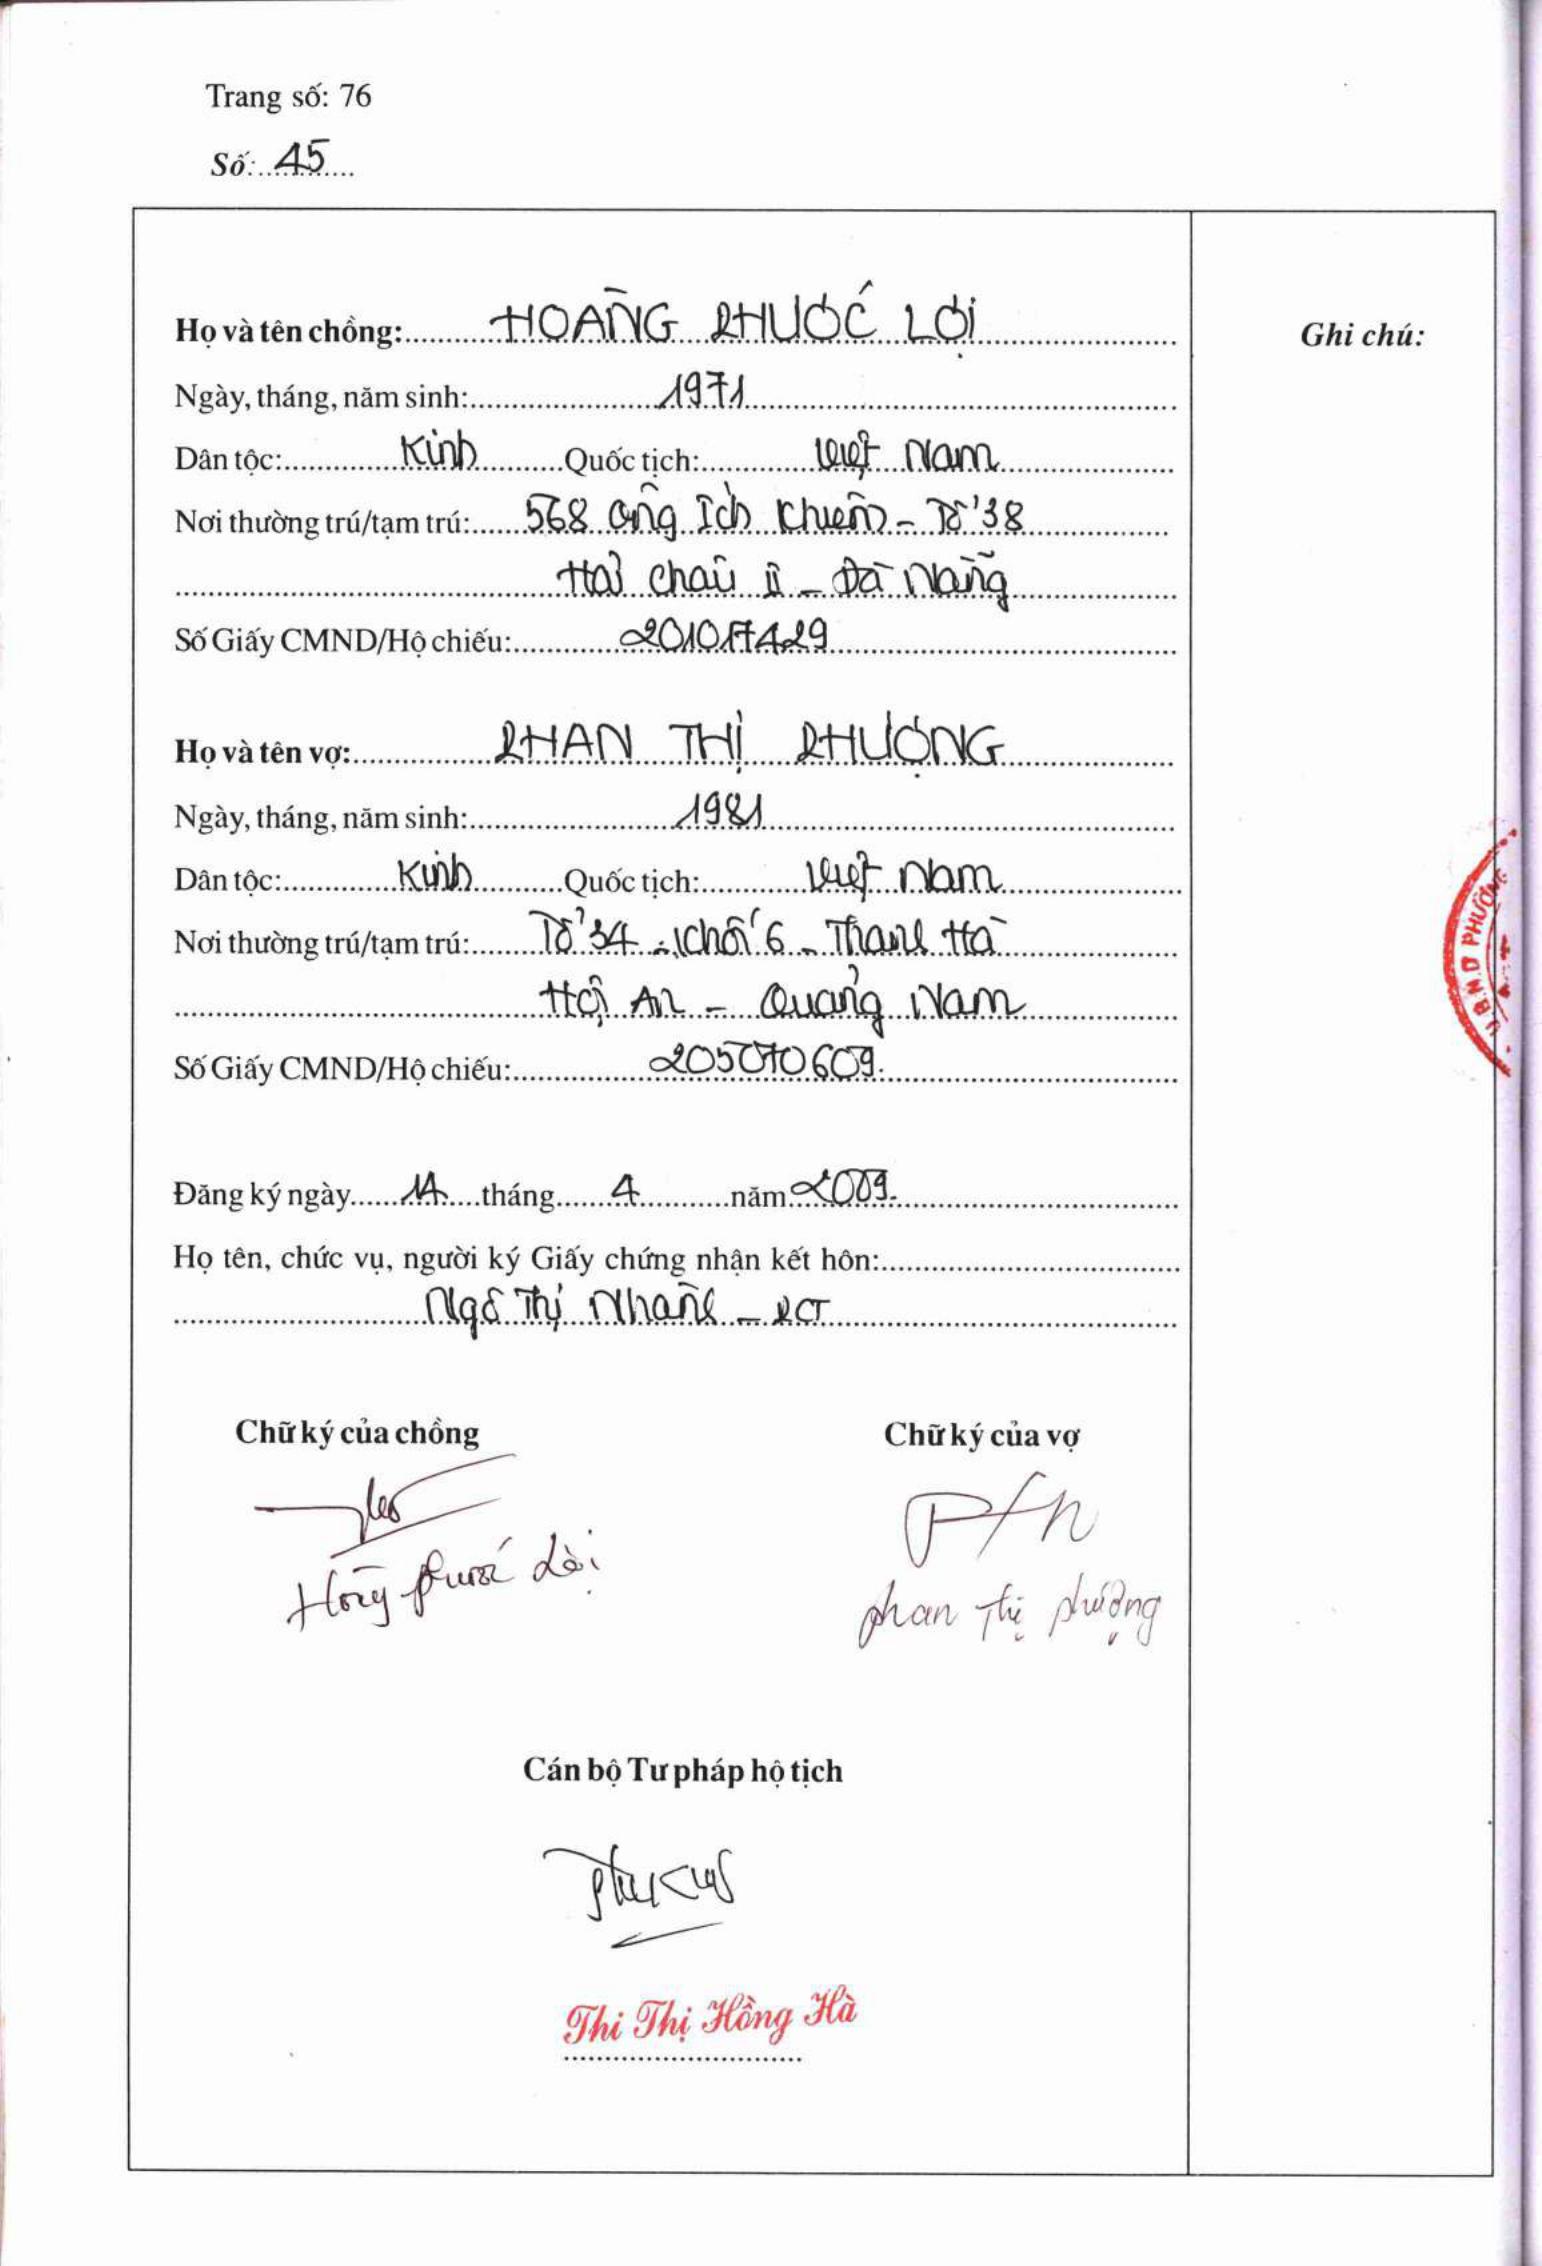 Trang số: 76
Số: 45
Họ và tên chồng: HOÀNG PHƯỚC LỢI
Ghi chú:
Ngày, tháng, năm sinh: 1971
Dân tộc: Kinh Quốc tịch: Việt Nam
Nơi thường trú/tạm trú: 568 Ông Ích Khiêm - Tổ 38
Hải Châu II - Đà Nẵng
Số Giấy CMND/Hộ chiếu: 201017429
Họ và tên vợ: PHAN THỊ PHƯỢNG
Ngày, tháng, năm sinh: 1981
Dân tộc: Kinh Quốc tịch: Việt Nam
Nơi thường trú/tạm trú: Tổ 34 - Khối 6 - Thanh Hà
Hội An - Quảng Nam
Số Giấy CMND/Hộ chiếu: 205070609
U.B.N.D PHƯỜNG
Đăng ký ngày 14 tháng 4 năm 2009
Họ tên, chức vụ, người ký Giấy chứng nhận kết hôn:
Ngô Thị Nhành - PCT
Chữ ký của chồng Chữ ký của vợ
Hoàng Phước Lợi
Phan Thị Phượng
Cán bộ Tư pháp hộ tịch
Thi Thị Hồng Hà